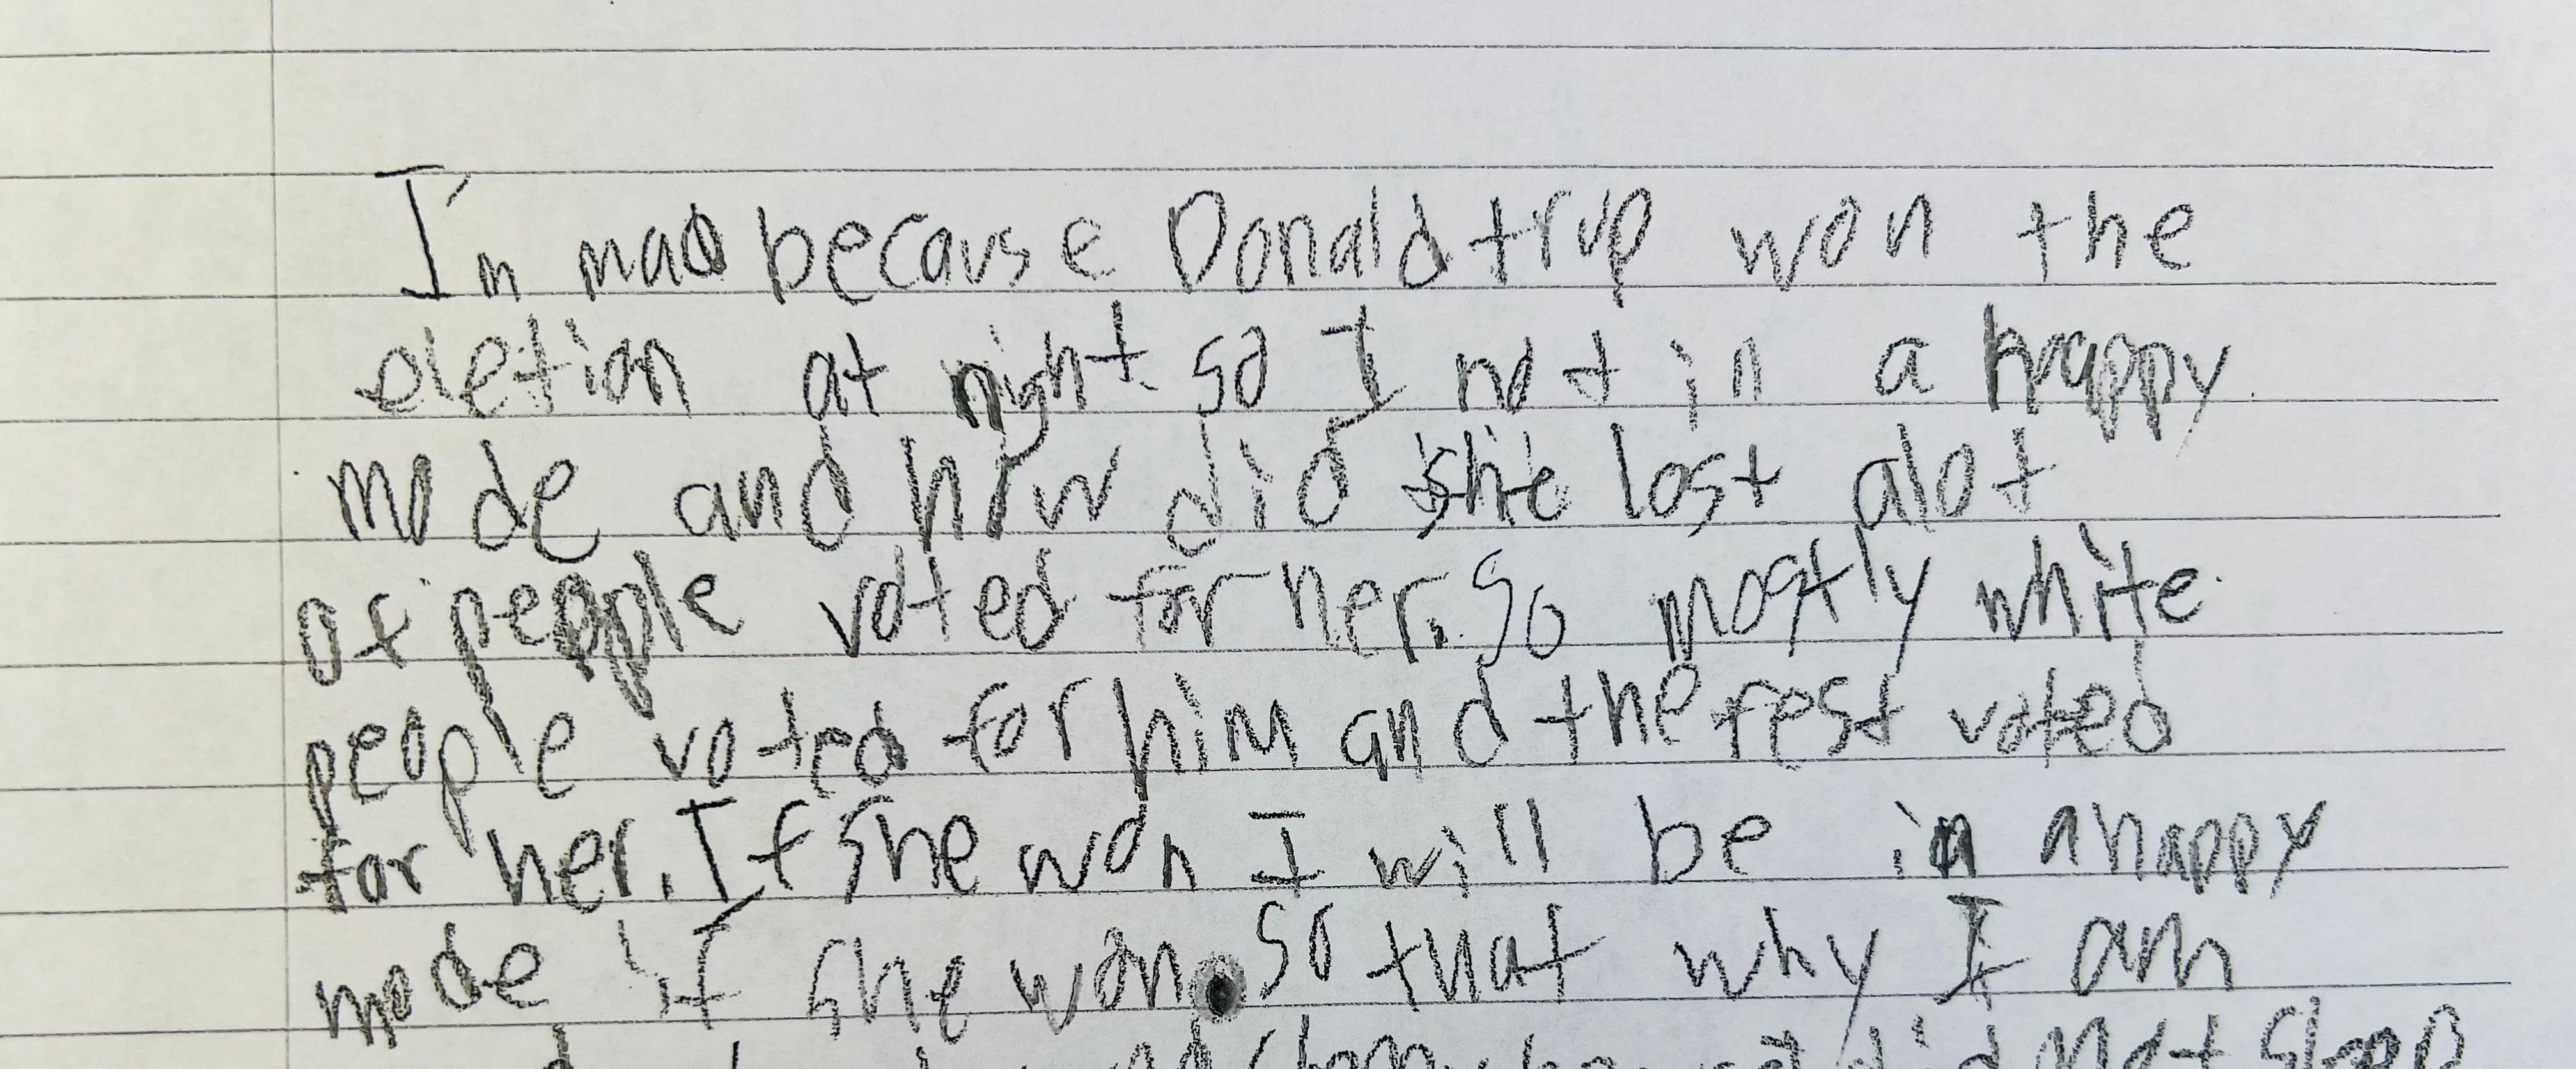 I'm mad because Donald trup won the
eletion at night so I not in a happy
mode and how did she lost alot
of people voted for her. So mostly white
people voted for him and the rest voted
for her. If she won I will be in a happy
mode if she won. so that why I am
did not sleep